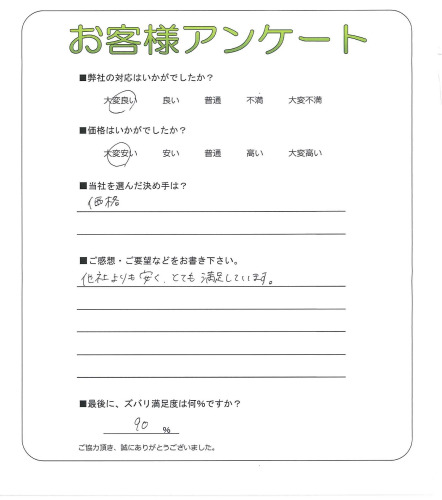 お客様アンケート
■弊社の対応はいかがでしたか？
大変良い 良い 普通 不満 大変不満
■価格はいかがでしたか？
大変安い 安い 普通 高い 大変高い
■当社を選んだ決め手は？
価格
■ご感想・ご要望などをお書き下さい。
他社よりも安く、とても満足しています。
■最後に、ズバリ満足度は何%ですか？
90 %
ご協力頂き、誠にありがとうございました。